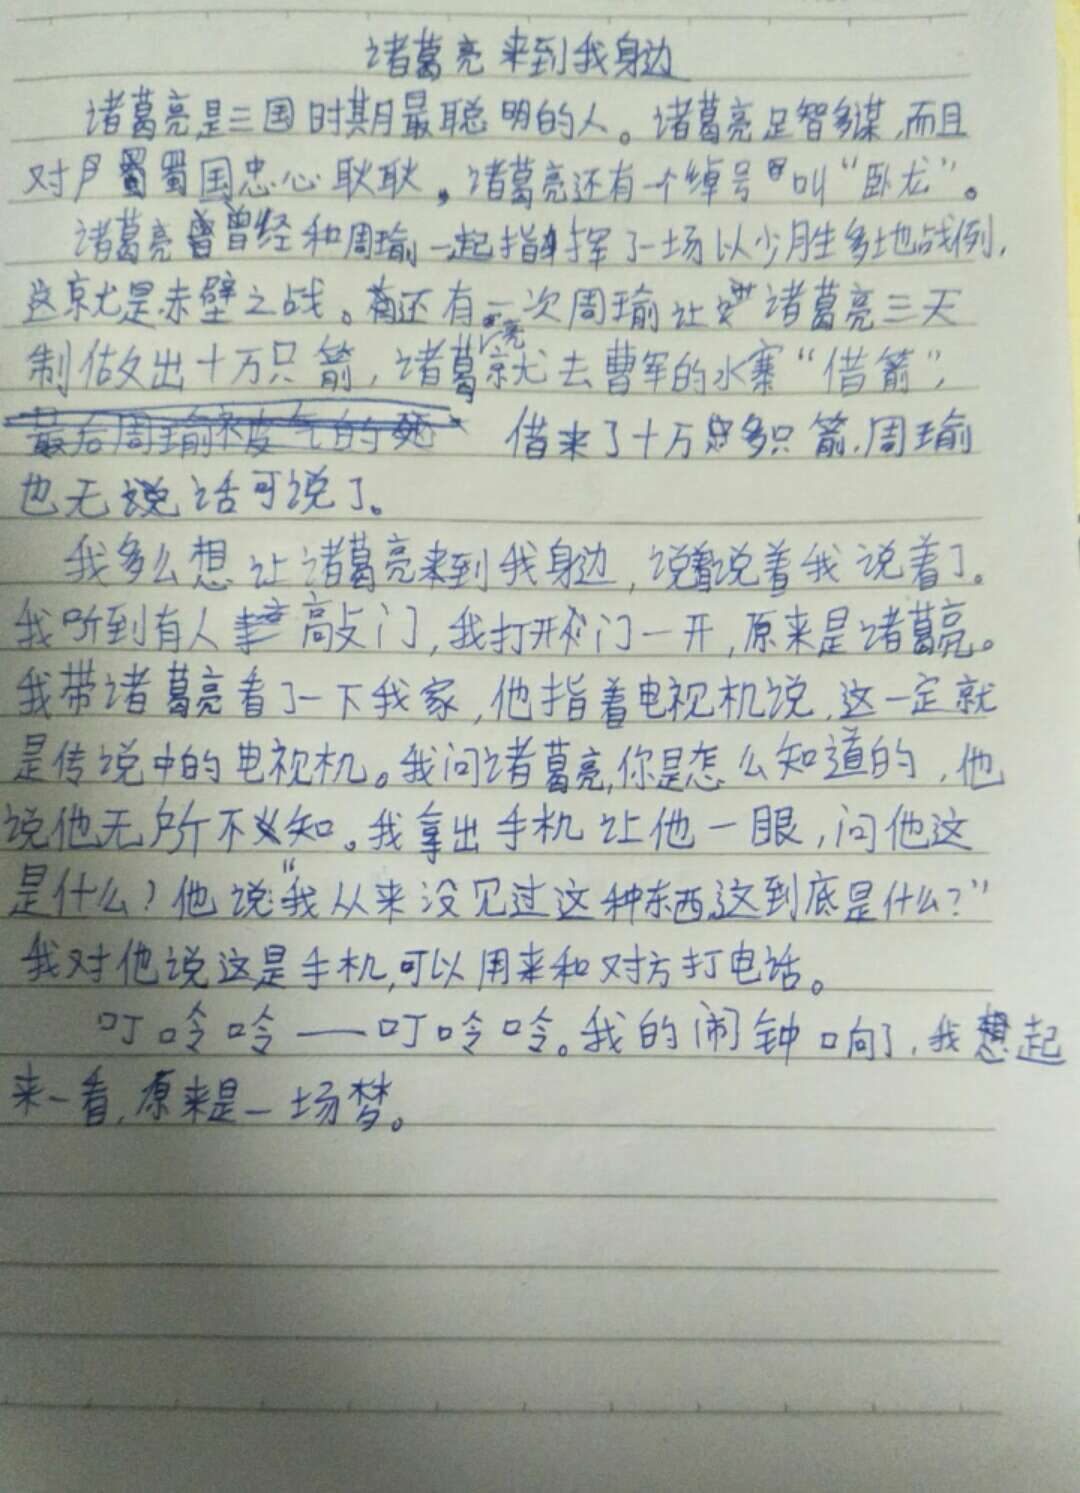 诸葛亮来到我身边
诸葛亮是三国时期最聪明的人。诸葛亮足智多谋,而且
对蜀国忠心耿耿。诸葛亮还有一个绰号叫“卧龙”。
诸葛亮曾经和周瑜一起指挥了一场以少胜多地战例,
这就是赤壁之战。还有一次周瑜让诸葛亮三天
制做出十万只箭,诸葛亮就去曹军的水寨“借箭”,
借来了十万多只箭,周瑜
也无话可说了。
我多么想让诸葛亮来到我身边,说着说着我说着了。
我听到有人敲门,我打开门一开,原来是诸葛亮。
我带诸葛亮看了一下我家,他指着电视机说,这一定就
是传说中的电视机。我问诸葛亮,你是怎么知道的,他
说他无所不知。我拿出手机让他一眼,问他这
是什么?他说“我从来没见过这种东西,这到底是什么?”
我对他说这是手机,可以用来和对方打电话。
叮呤呤——叮呤呤。我的闹钟响了,我起
来一看,原来是一场梦。